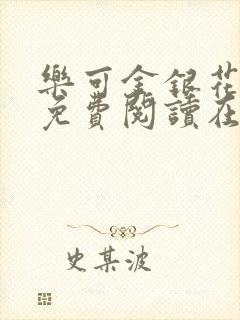 樂可金銀花
免費閱讀在
史某波